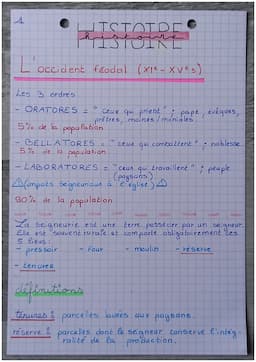 1
HISTOIRE
histoire
L'occident féodal (XIe - XVe s)
Les 3 ordres :
- ORATORES = "ceux qui prient" ; pape, évêques,
prêtres, moines/moniales.
5% de la population
- BELLATORES = "ceux qui combattent" ; noblesse
5% de la population
- LABORATORES = "ceux qui travaillent" ; peuple
paysans)
(impôts seigneuriaux à l'église)
90% de la population
La seigneurie est une terre possédée par un seigneur.
Elle est souvent rurale et comporte obligatoirement les
5 lieux :
- pressoir - four - moulin - réserve
- tenures
définitions
tenures : parcelles louées aux paysans.
réserve : parcelles dont le seigneur conserve l'inté-
gralité de la production.